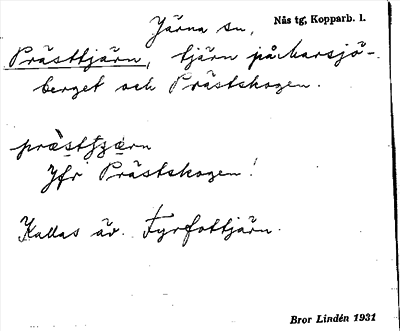 Järna sn, Nås tg, Kopparb. l.
Prästtjärn, tjärn på Marsjö-
berget och Prästskogen.
Jfr Prästskogen!
Kallas äv. Fyrfottjärn.
Bror Lindén 1931